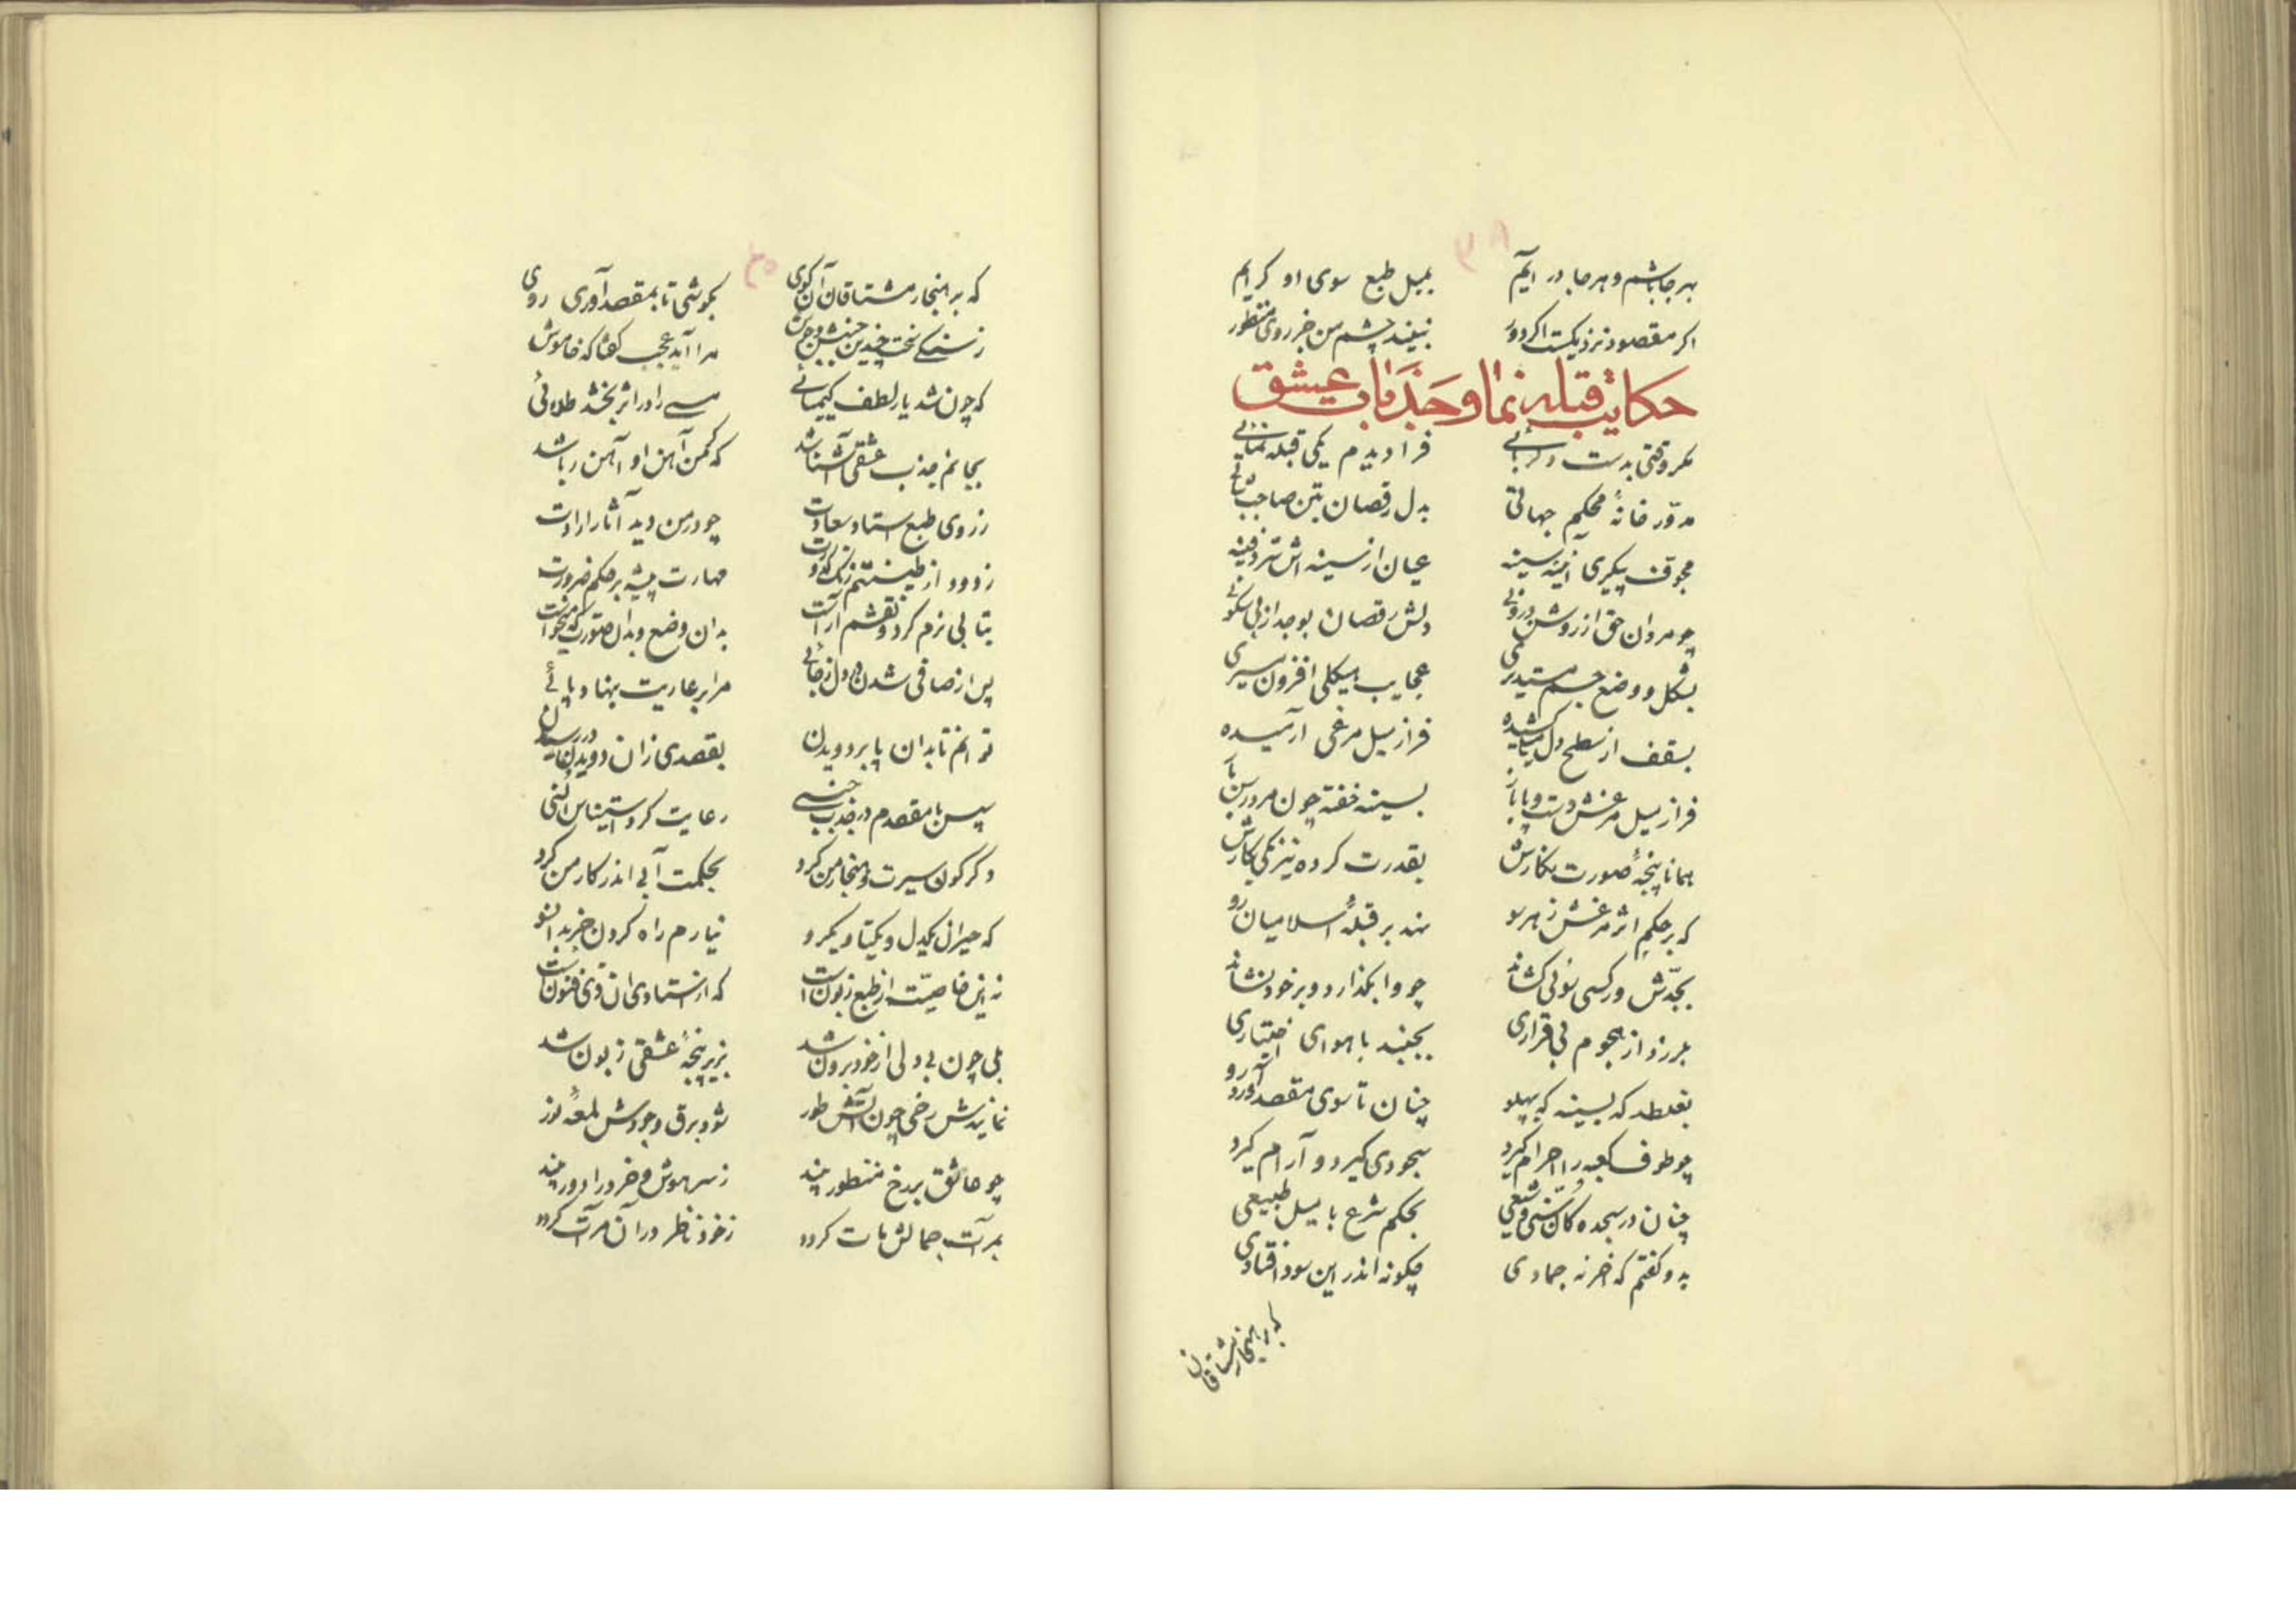 بهر جا باشم و هر جا در آیم بمیل طبع سوی او گرایم
اگر مقصود نزدیکست اگر دور نبیند چشم من جز روی منظور
حکایت قبله نما و جذبات عشق
مگر وقتی بدست دلربائی فرا دیدم یکی قبله نمائی
مدوّر خانهٔ محکم جهاتی بدل رقصان بتن صاحب
مجوف پیکری آئینه سینه عیان از سینه اش سرّ دفینه
چو مردان حق از روشن درونی دلش رقصان بوجد از بی سکونی
بشکل و وضع جسم مستدیری عجایب هیکلی افزون
بسقف از سطح دل میلی کشیده فراز میل مرغی آرمیده
فراز میل مرغش دست و پا باز بسینه خفته چون مرد
همانا پنجهٔ صورت نگارش بقدرت کرده نیرنگی بکارش
که بر حکم اثر مرغش ز هر سو نهد بر قبلهٔ اسلامیان رو
بجدّش ور کسی سوئی کشاند چو وا بگذارد و بر خود نشاند
بلرزد از هجوم بی قراری بجنبد با هوای اختیاری
بغلطد که بسینه که بپهلو چنان تا سوی مقصد آورد رو
چو طوف کعبه را احرام گیرد سجودی گیرد و آرام گیرد
چنان در سجده کان سنّی و شیعی بحکم شرع با میل طبیعی
بدو گفتم که آخر نه جمادی چگونه اندر این سودا فتادی
که بر هنجار مشتاقان
که بر هنجار مشتاقان آن کوی بکوشی تا بمقصد آوری روی
ز سنگ سخت چندین جنبش و جوش مرا آید عجب گفتا که خاموش
که چون شد یار لطف کیمیائی مسی را در اثر بخشد طلائی
بجانم جذب عشقی آشنا شد که کمن آهن او آهن ربا شد
ز روی طبع استاد سعادت چو در من دید آثار ارادت
زدود از طینتم زنگ کدورت مهارت پیشه بر حکم ضرورت
بتابی نرم کرد و نقشم آراست بدان وضع و بدان صورت که میخواست
پس از صافی شدن دادل ز جائی مرا بر عاریت بنهاد پائی
توانم تا بدان پا بر دویدن بقصدی زان دویدن در رسیدن
سپس با مقصدم در جذب جنسی رعایت کرد استیناس انسی
دگرگون سیرت و هنجار من کرد بحکمت آبی اندر کار من کرد
که حیران یکدل و یکتا و یکرو نیارم راه کردن جز بدانسو
نه این خاصیّت از طبع زبونست که از استادی آن ذی فنونست
بلی چون بیدلی از خود برون شد بزیر پنجهٔ عشقی زبون شد
نمایندش رخی چون آتش طور شود برق وجودش لمعهٔ نور
چو عاشق بر رخ منظور بیند ز سر هوش و خرد را دور بیند
بمرآت جمالش مات گردد ز خود ناظر در آن مرآت گردد